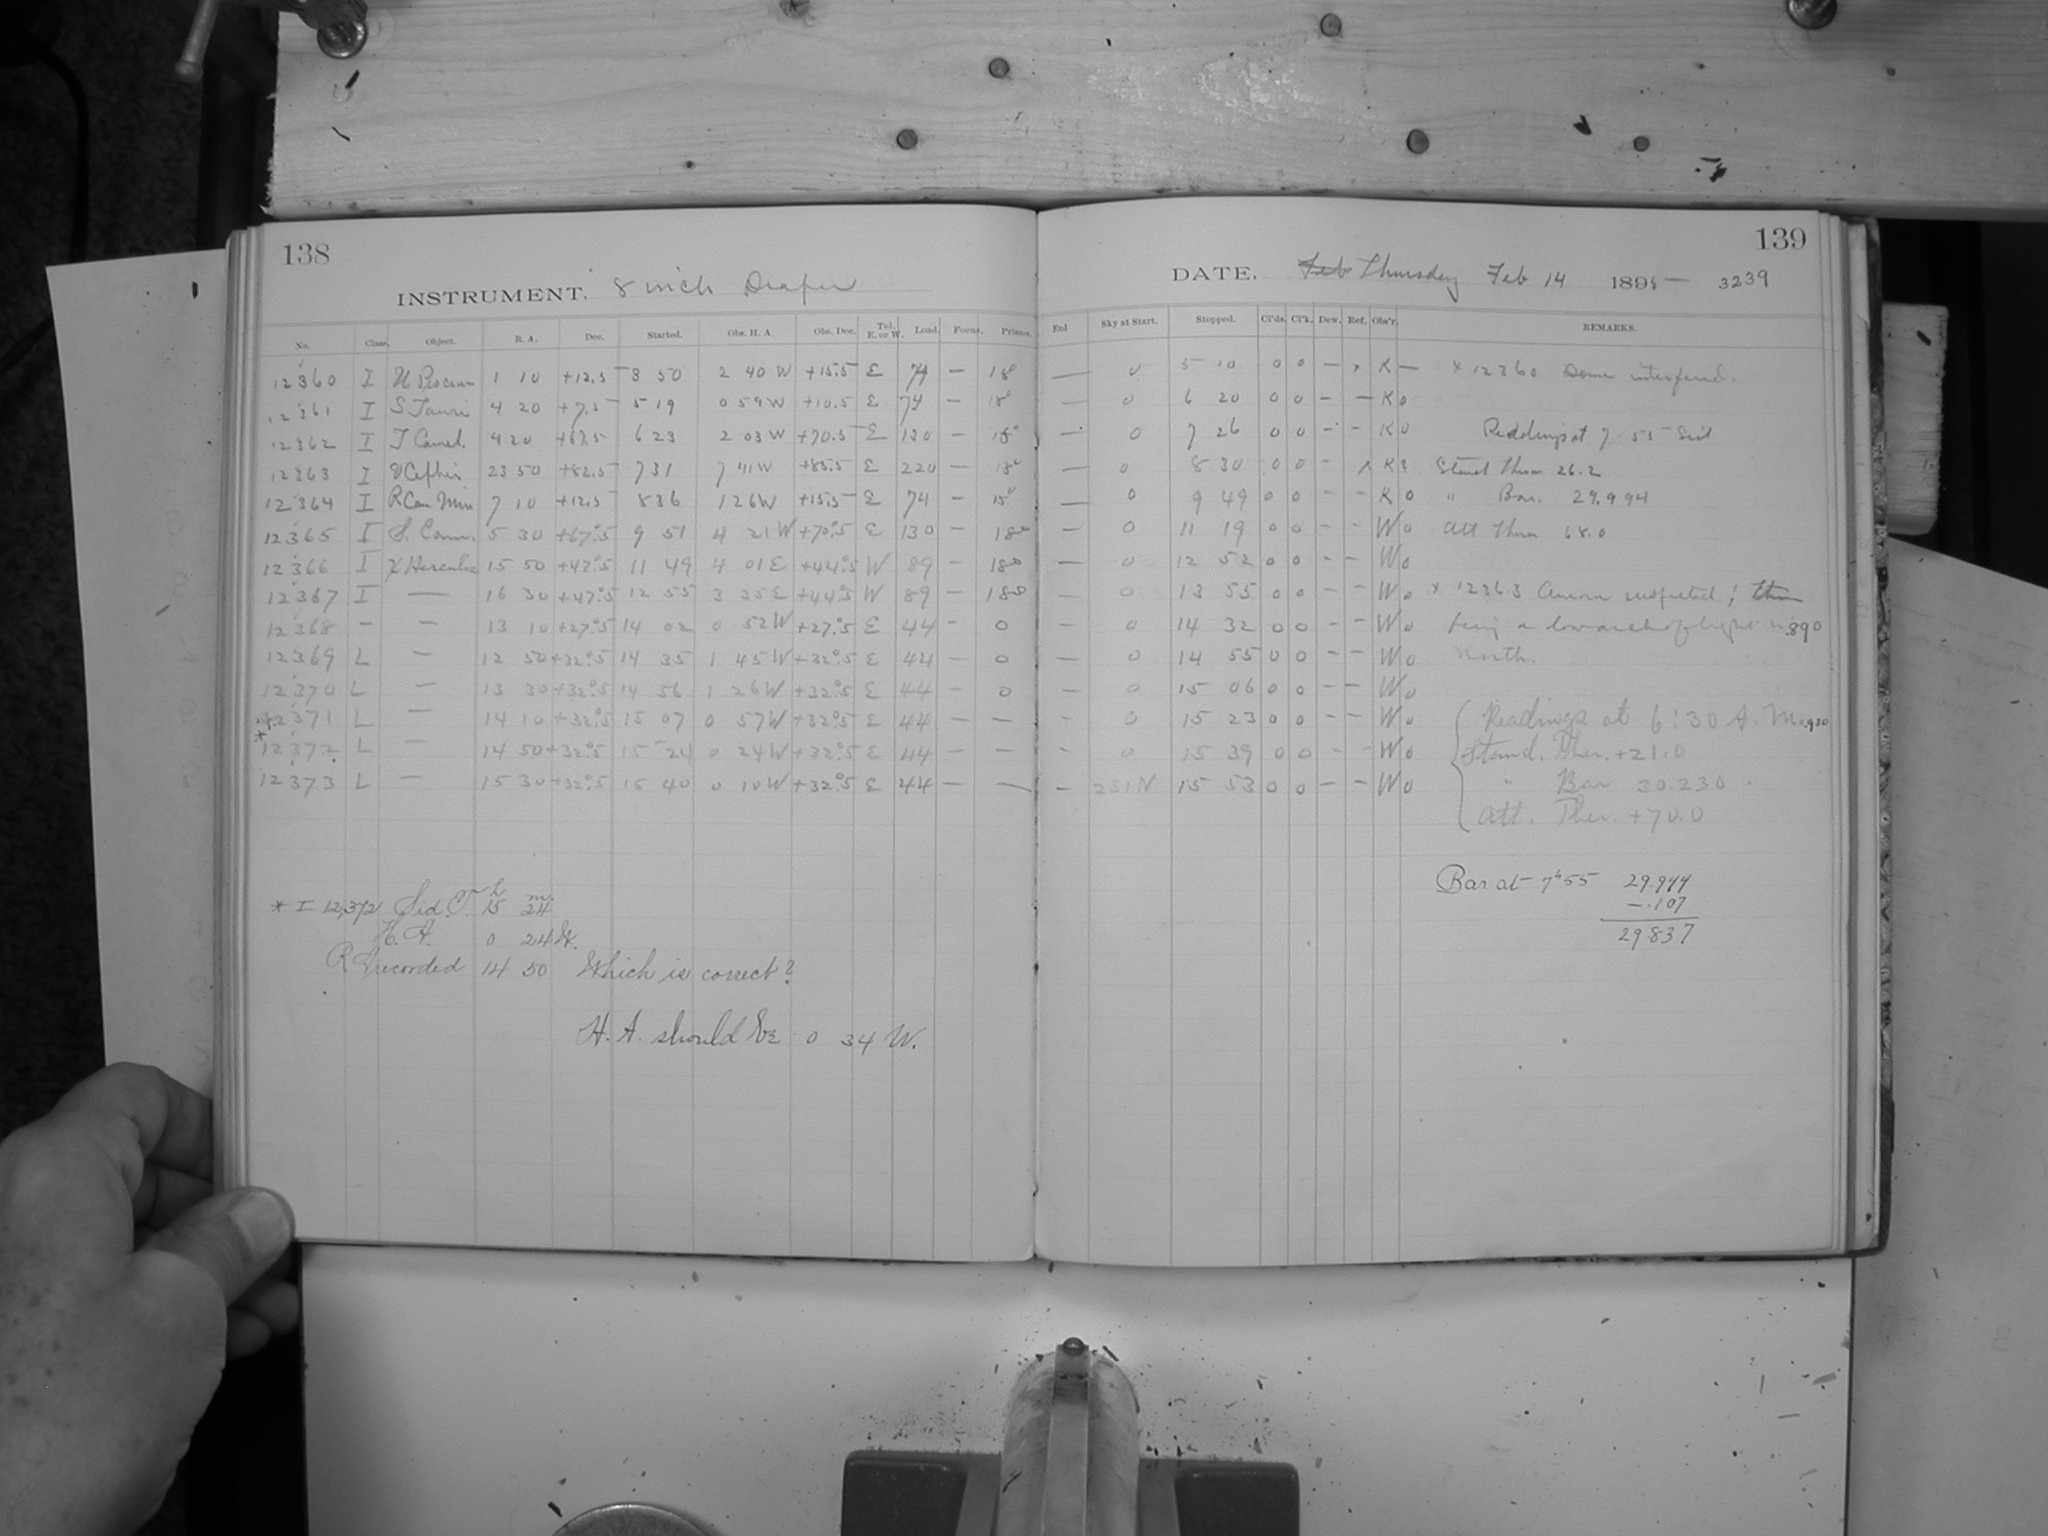 138
INSTRUMENT. 8 inch Draper
No. Class. Object. R. A. Dec. Started. Obs. H. A Obs. Dec. Tel. E. or W. Load. Focus. Prisms.
12360 I U Piscium 1 10 +12.5 3 50 2 40 W +15.5 E 74 — 18°
12361 I S Tauri 4 20 +7.5 5 19 0 59 W +10.5 E 74 — 18°
12362 I T Camel. 4 20 +67.5 6 23 2 03 W +70.5 E 130 — 18°
12363 I U Cephei 23 50 +82.5 7 31 7 41 W +85.5 E 220 — 18°
12364 I R Can Min 7 10 +12.5 8 36 1 26 W +15.5 E 74 — 18°
12365 I S. Cam. 5 30 +67°.5 9 51 4 21 W +70°.5 E 130 — 18°
12366 I X Herculis 15 50 +47°.5 11 49 4 01 E +44°.5 W 89 — 18°
12367 I — 16 30 +47°.5 12 55 3 35 E +44°.5 W 89 — 18°
12368 — — 13 10 +27°.5 14 02 0 52 W +27°.5 E 44 — 0
12369 L — 12 50 +32°.5 14 35 1 45 W +32°.5 E 44 — 0
12370 L — 13 30 +32°.5 14 56 1 26 W +32°.5 E 44 — 0
12371 L — 14 10 +32°.5 15 07 0 57 W +32°.5 E 44 — —
*12372 L — 14 50 +32°.5 15 24 0 24 W +32°.5 E 44 — —
12373 L — 15 30 +32°.5 15 40 0 10 W +32°.5 E 44 — —
* I 12,372 Sid. T. 15h 24m.
H. A. 0 24 W.
R A recorded 14 50 Which is correct?
H. A. should be 0 34 W.
139
DATE. Feb Thursday Feb 14 1895 — 3239
Enl Sky at Start. Stopped. Cl'ds. Cl'k. Dew. Ref. Obs'r. REMARKS.
— 0 5 10 0 0 — x K — x 12360 Dome interfered.
— 0 6 20 0 0 — — K 0
— 0 7 26 0 0 — — K 0 Readings at 7 55 Sid
— 0 8 30 0 0 — x K ? Stand Therm 26.2
— 0 9 49 0 0 — — K 0 " Bar. 29.994
— 0 11 19 0 0 — — W 0 Att Therm 68.0
— 0 12 52 0 0 — — W 0
— 0 13 55 0 0 — — W 0 x 12363 Aurora suspected; there
— 0 14 32 0 0 — — W 0 being a low arch of light in .890
— 0 14 55 0 0 — — W 0 north.
— 0 15 06 0 0 — — W 0
— 0 15 23 0 0 — — W 0 Readings at 6:30 A. M.
— 0 15 39 0 0 — — W 0 Stand. Ther. +21.0
— 2S1N 15 53 0 0 — — W 0 " Bar 30.230
Att. Ther. +70.0
Bar at 7h 55 29.944
-.107
29.837